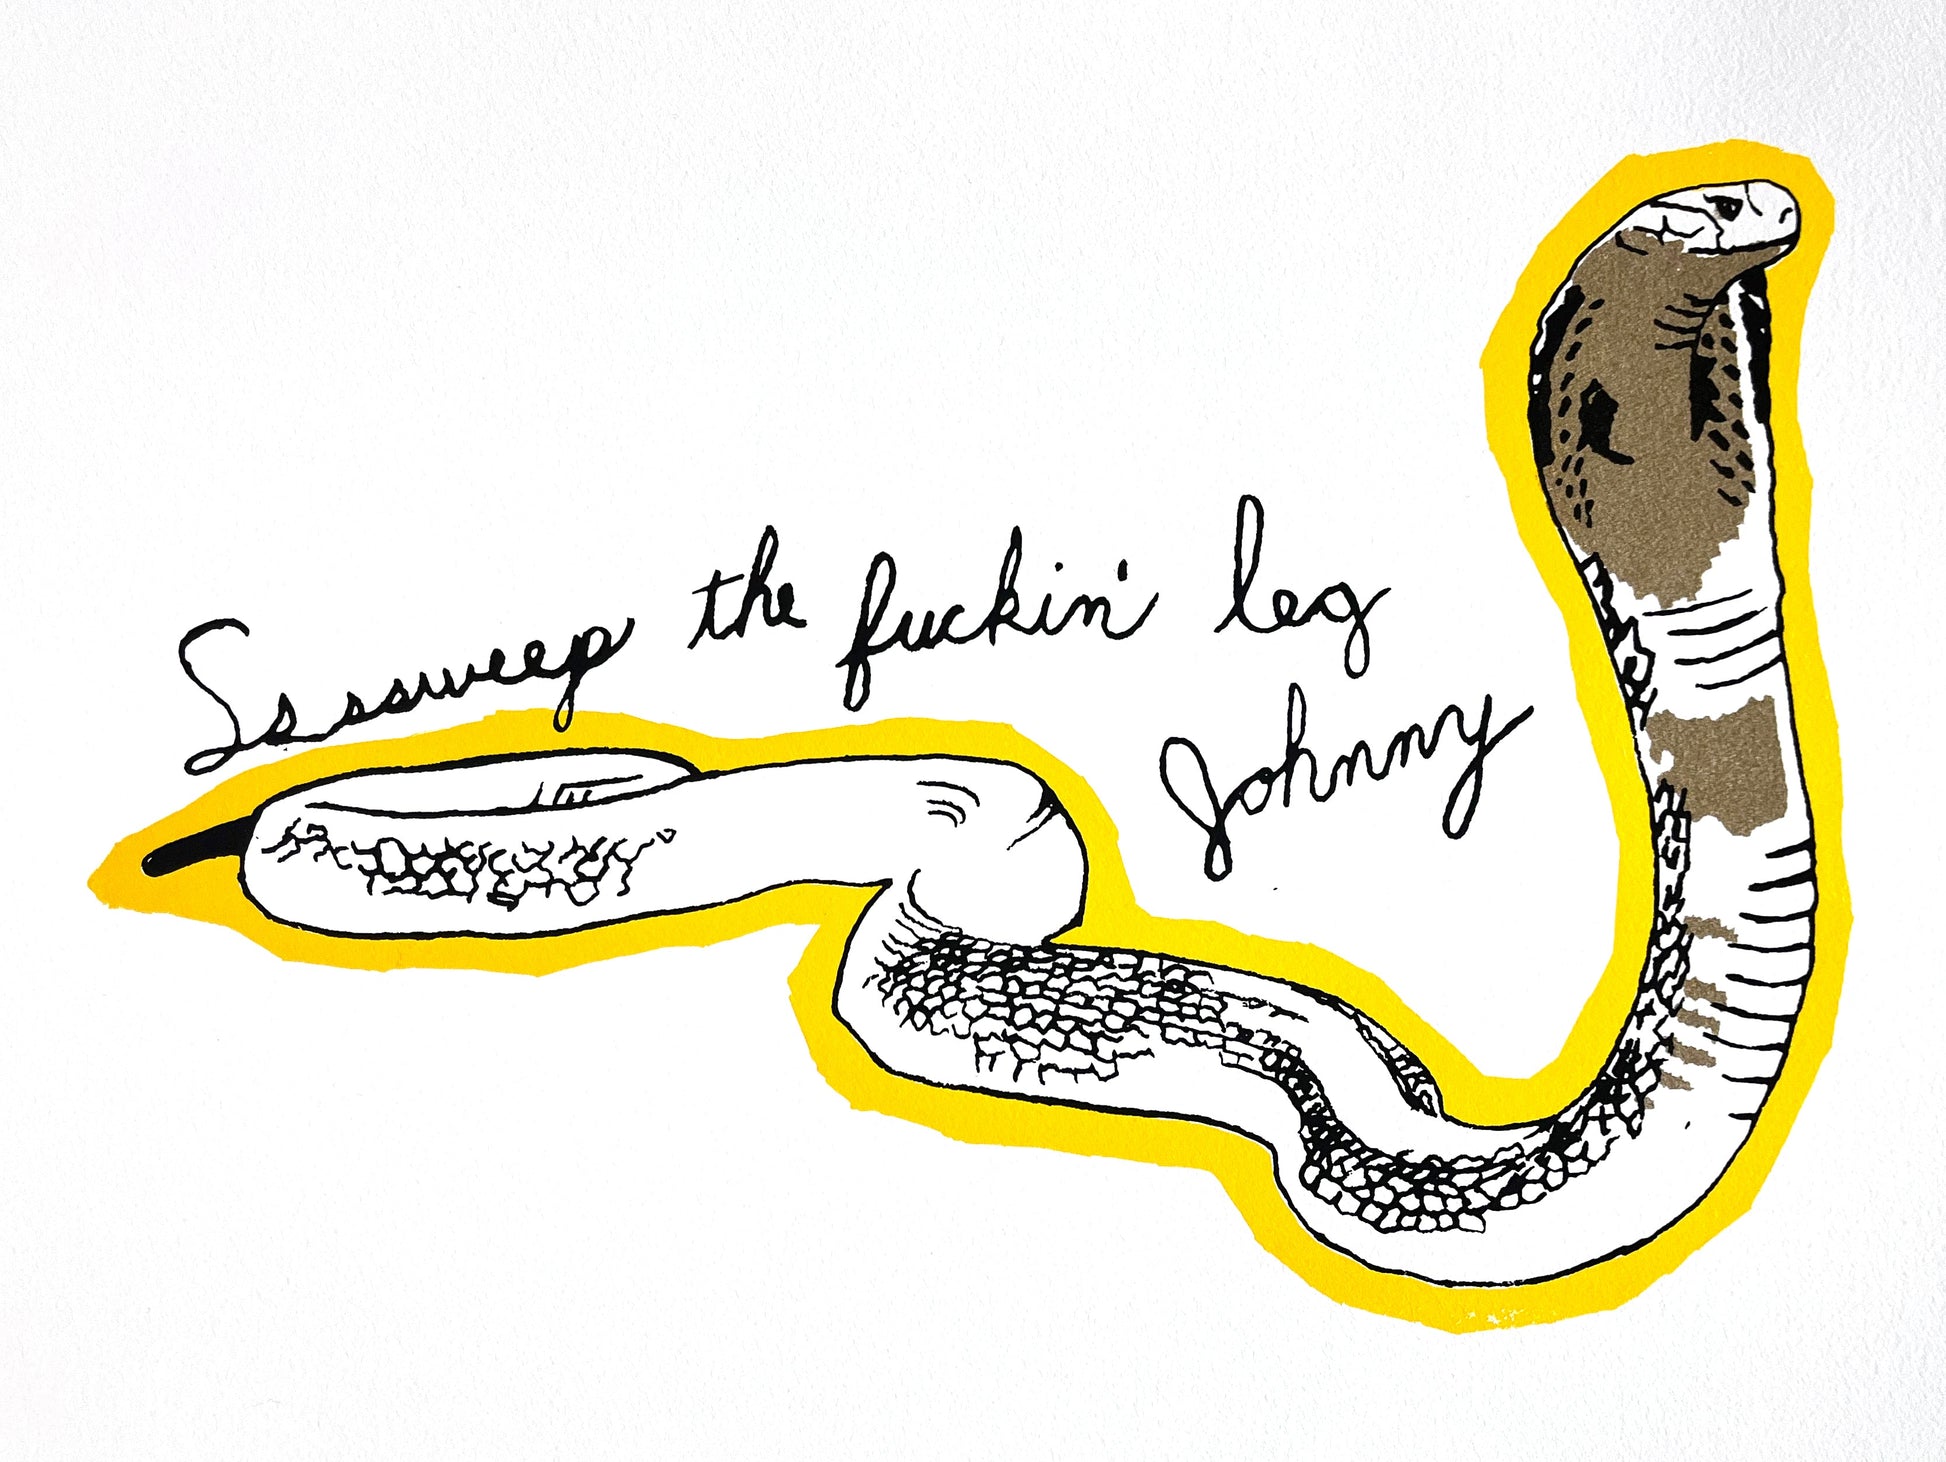 Ssssweep the fuckin' leg
Johnny